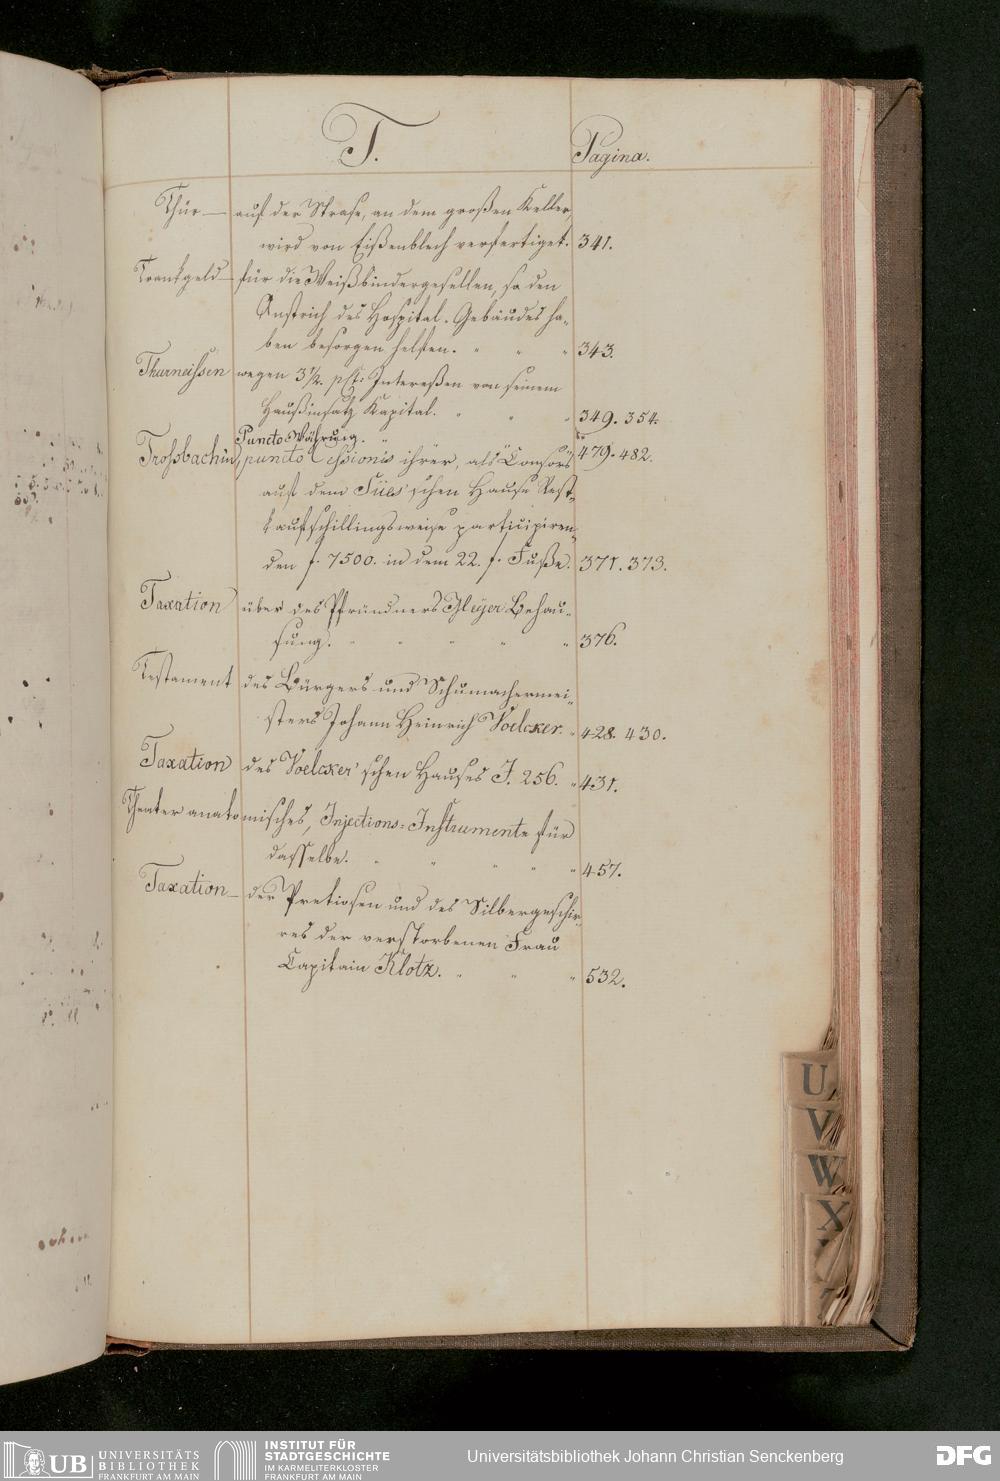 T.
Pagina.
Thür — auf der Strase, an dem großen Keller,
wird von Eißenblech verfertiget. 341.
Trankgeld — für die Weißbindergesellen, so den
Anstrich des Hospital-Gebäudes ha-
ben besorgen helfen. " " " 343.
Thurneissen wegen 3 1/2. pCt: Intereßen von seinem
Haußinsatz Kapital. " " " 349. 354.
Puncto Währung. " 479. 482.
Trossbachin, puncto Cessionis ihrer, als Consors
auf dem Sües'schen Hause Rest-
kaufschillingsweise participiren-
den f. 7500. in dem 22. f. Fuße. 371. 373.
Taxation über des Pfründners Behau-
sung. " " " " " 376.
Testament des Bürgers und Schumachermei-
sters Johann Heinrich Voelcker. " 428. 430.
Taxation des Voelcker'schen Hauses J. 256. " 431.
Theater anatomisches, Injections-Instrumente für
dasselbe. " " " " " 457.
Taxation — der Pretiosen und des Silbergeschir-
res der verstorbenen Frau
Capitain Klotz. " " " 532.
U
V
W
X
UB UNIVERSITÄTS
BIBLIOTHEK
FRANKFURT AM MAIN
INSTITUT FÜR
STADTGESCHICHTE
IM KARMELITERKLOSTER
FRANKFURT AM MAIN
Universitätsbibliothek Johann Christian Senckenberg
DFG